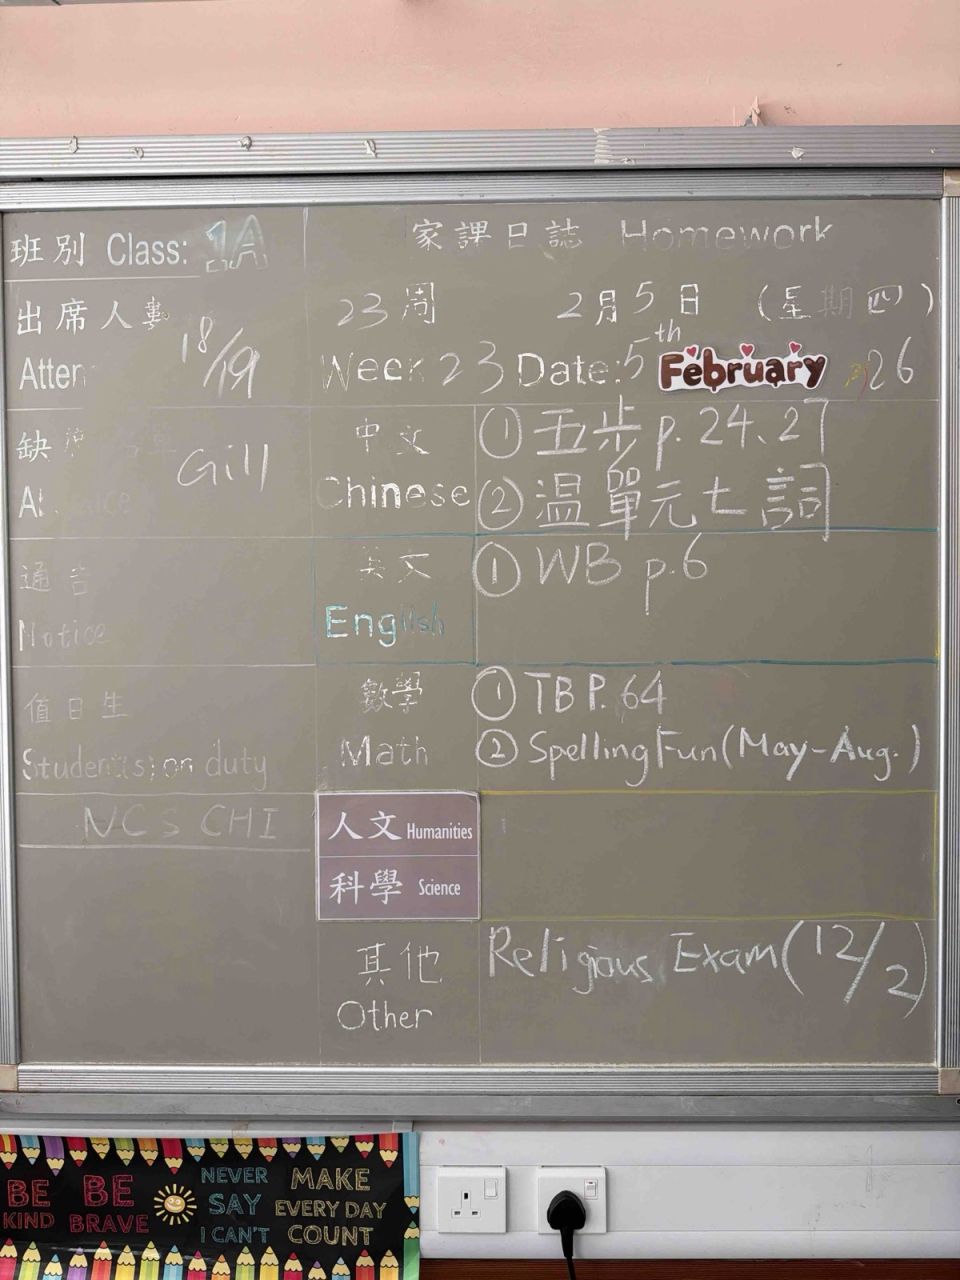 班別 Class: 1A
家課日誌 Homework
出席人數
18/19
Atten
23周 2月5日 (星期四)
Week 23 Date: 5th February 26
缺
Gill
中文
Chinese
① 五步 p. 24、27
② 温單元七詞
通告
Notice
英文
English
① WB p.6
值日生
Student(s) on duty
數學
Math
① TB P. 64
② Spelling Fun (May-Aug.)
NCS CHI
人文 Humanities
科學 Science
其他
Other
Religious Exam (12/2)
BE KIND
BE BRAVE
NEVER SAY I CAN'T
MAKE EVERY DAY COUNT